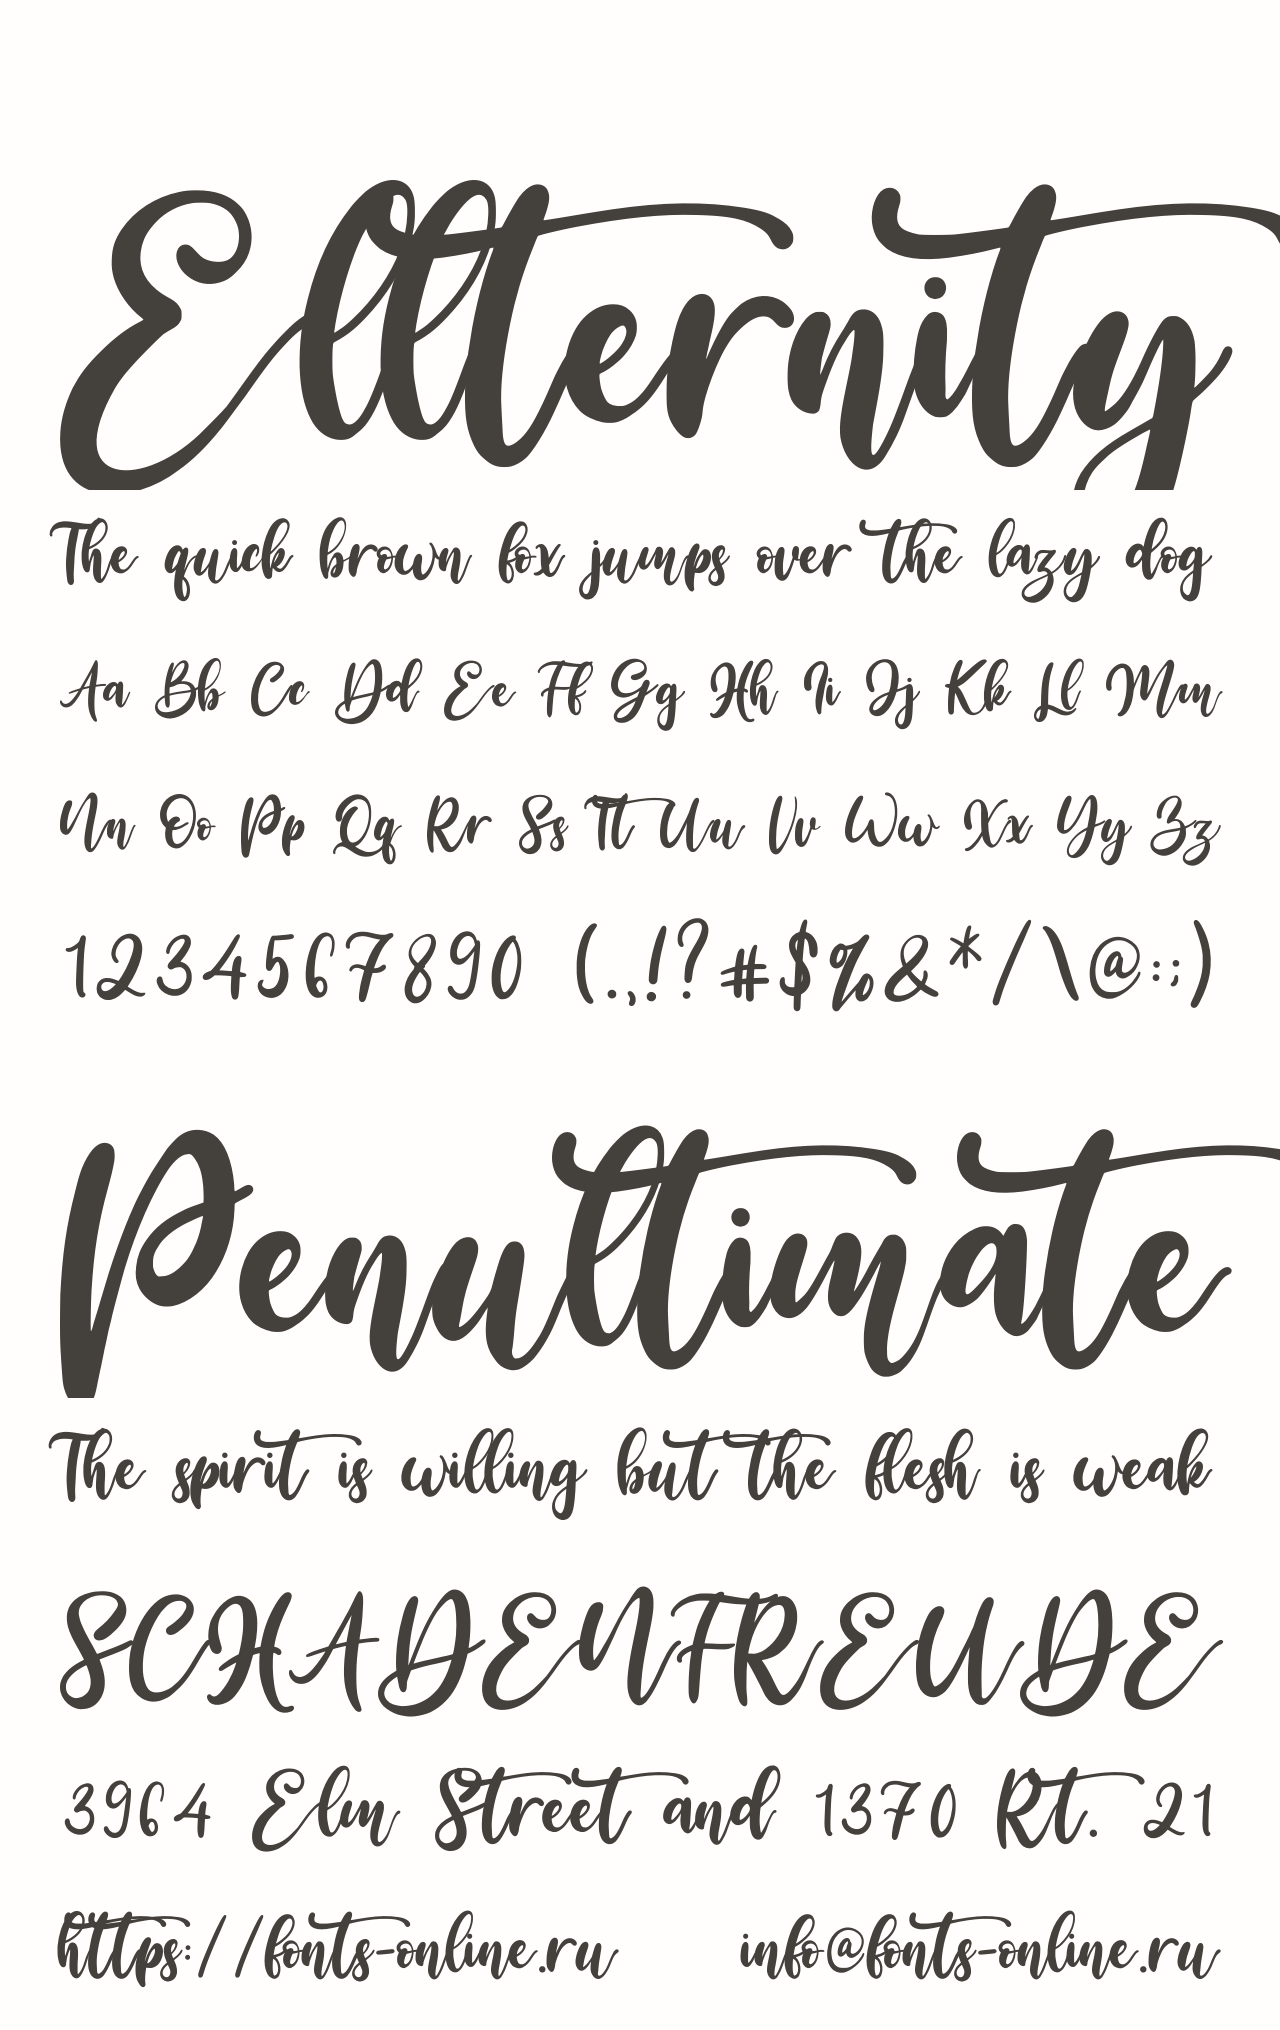 Ellternity
The quick brown fox jumps over the lazy dog
Aa Bb Cc Dd Ee Ff Gg Hh Ii Jj Kk Ll Mm
Nn Oo Pp Qq Rr Ss Tt Uu Vv Ww Xx Yy Zz
1234567890 (.,!?#$%&*/\@:;)
Penultimate
The spirit is willing but the flesh is weak
SCHADENFREUDE
3964 Elm Street and 1370 Rt. 21
https://fonts-online.ru info@fonts-online.ru